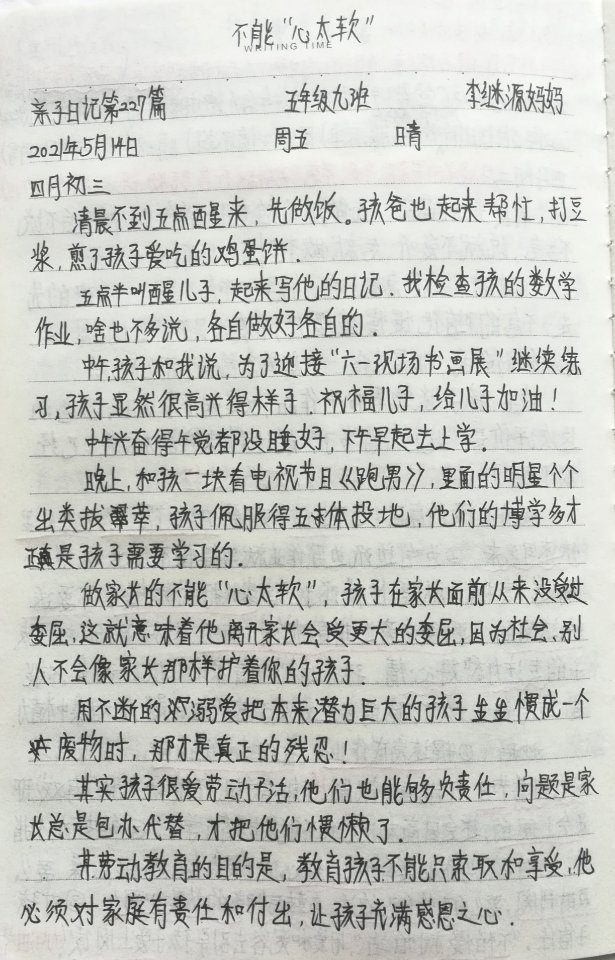 不能“心太软”
WRITING TIME
亲子日记第227篇 五年级九班 李继源妈妈
2021年5月14日 周五 晴
四月初三
清晨不到五点醒来，先做饭。孩爸也起来帮忙，打豆
浆，煎了孩子爱吃的鸡蛋饼．
五点半叫醒儿子，起来写他的日记．我检查孩的数学
作业，啥也不多说，各自做好各自的．
中午，孩子和我说，为了迎接“六一现场书画展”继续练
习，孩子显然很高兴得样子．祝福儿子，给儿子加油！
中午兴奋得午觉都没睡好，下午早起去上学．
晚上，和孩一块看电视节目《跑男》，里面的明星个个
出类拔萃，孩子佩服得五体投地，他们的博学多才
正是孩子需要学习的．
做家长的不能“心太软”，孩子在家长面前从来没受过
委屈，这就意味着他离开家长会受更大的委屈，因为社会、别
人不会像家长那样护着你的孩子
用不断的溺爱把本来潜力巨大的孩子坐坐惯成一个
废物时，那才是真正的残忍！
其实孩子很爱劳动干活，他们也能够负责任，问题是家
长总是包办代替，才把他们惯懒了．
其劳动教育的目的是，教育孩子不能只索取和享受，他
必须对家庭有责任和付出，让孩子充满感恩之心．